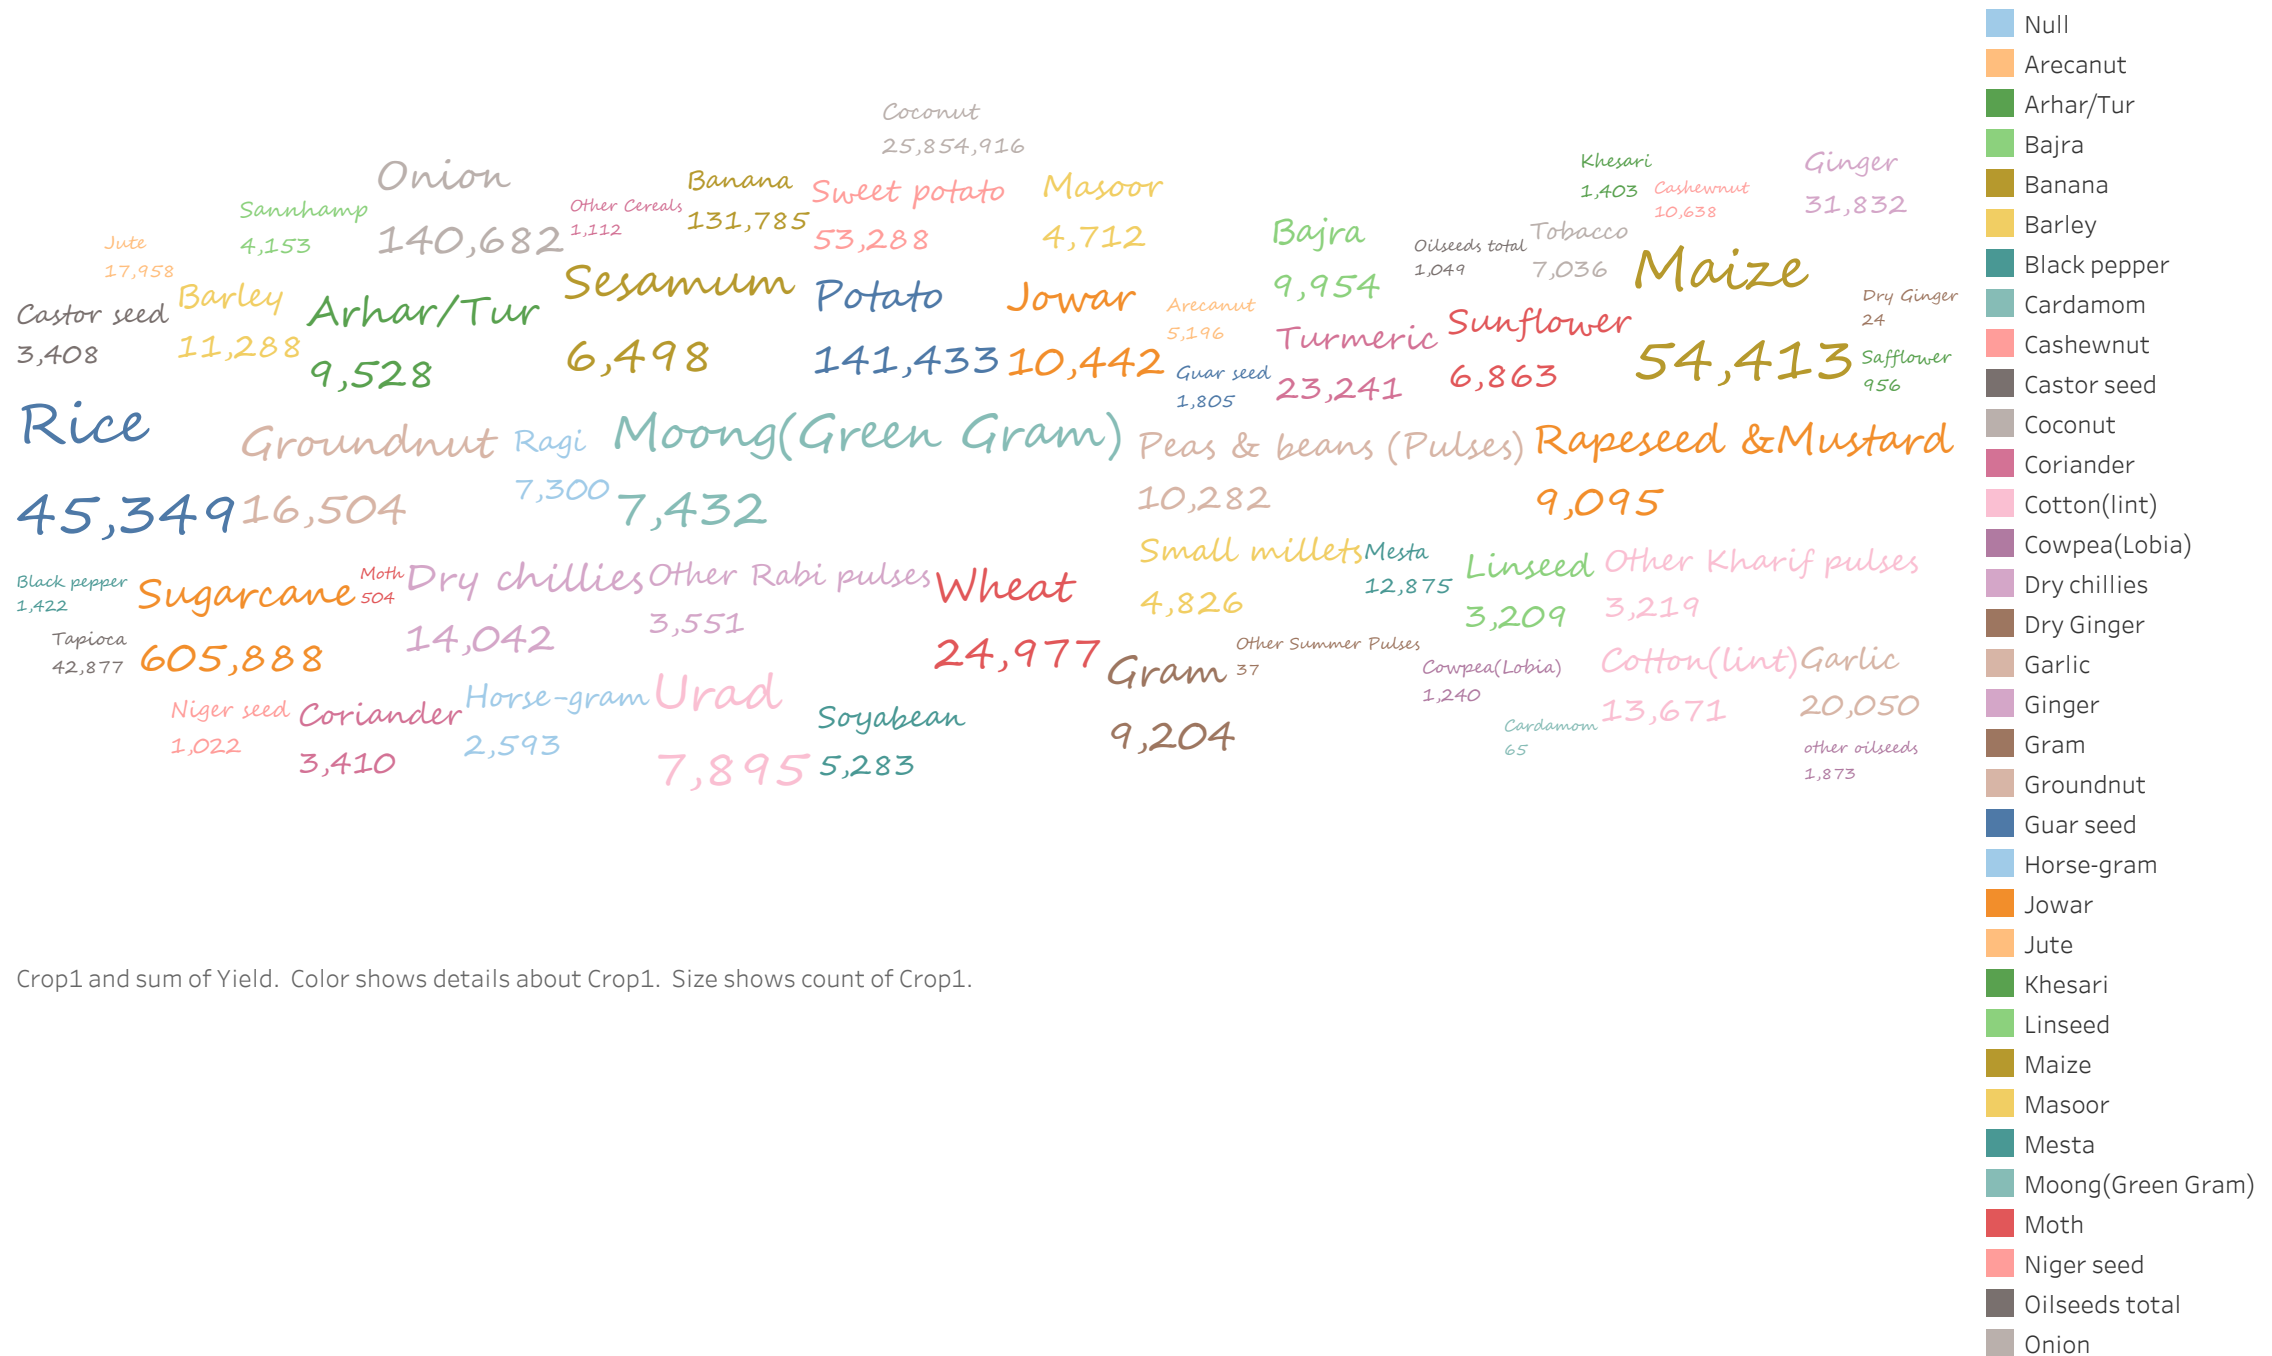 Coconut
25,854,916
Onion
140,682
Sannhamp
4,153
Other Cereals
1,112
Banana
131,785
Sweet potato
53,288
Masoor
4,712
Khesari
1,403
Cashewnut
10,638
Ginger
31,832
Jute
17,958
Bajra
9,954
Oilseeds total
1,049
Tobacco
7,036
Maize
54,413
Castor seed
3,408
Barley
11,288
Arhar/Tur
9,528
Sesamum
6,498
Potato
141,433
Jowar
10,442
Arecanut
5,196
Guar seed
1,805
Turmeric
23,241
Sunflower
6,863
Dry Ginger
24
Safflower
956
Rice
45,349
Groundnut
16,504
Ragi
7,300
Moong(Green Gram)
7,432
Peas & beans (Pulses)
10,282
Rapeseed &Mustard
9,095
Black pepper
1,422
Tapioca
42,877
Sugarcane
605,888
Moth
504
Dry chillies
14,042
Other Rabi pulses
3,551
Wheat
24,977
Small millets
4,826
Mesta
12,875
Linseed
3,209
Other Kharif pulses
3,219
Niger seed
1,022
Coriander
3,410
Horse-gram
2,593
Urad
7,895
Soyabean
5,283
Gram
9,204
Other Summer Pulses
37
Cowpea(Lobia)
1,240
Cardamom
65
Cotton(lint)
13,671
Garlic
20,050
other oilseeds
1,873
Crop1 and sum of Yield. Color shows details about Crop1. Size shows count of Crop1.
Null
Arecanut
Arhar/Tur
Bajra
Banana
Barley
Black pepper
Cardamom
Cashewnut
Castor seed
Coconut
Coriander
Cotton(lint)
Cowpea(Lobia)
Dry chillies
Dry Ginger
Garlic
Ginger
Gram
Groundnut
Guar seed
Horse-gram
Jowar
Jute
Khesari
Linseed
Maize
Masoor
Mesta
Moong(Green Gram)
Moth
Niger seed
Oilseeds total
Onion